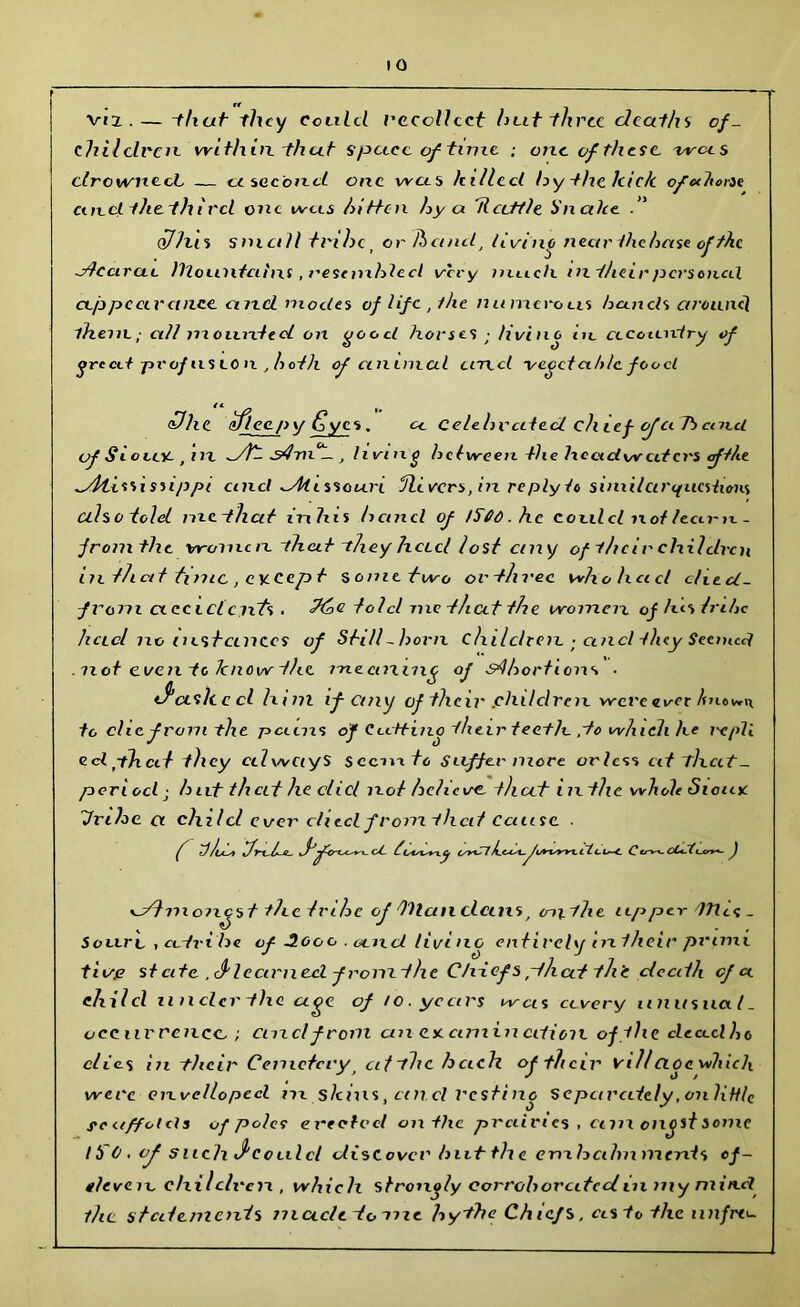 10
viz. — "that they could recollect but three deaths of-
children within that space of time ; one of these was
drowned — a second one was killed by the kick of a horse
and the third one was bitten by a Rattle Snake ."
This small tribe, or Band, living near the base of the
Acarai Mountains, resembled very much in their personal
appearance and modes of life, the numerous bands around
them; all mounted on good horses; living in a country of
great profusion, both of animal and vegetable food
The "Sleepy Eyes," a celebrated chief of a Band
of Sioux, in Nth Amca, living between the headwaters of the
Mississippi and Missouri Rivers, in reply to similar questions
also told me that in his band of 1500. he could not learn-
from the women that they had lost any of their children
in that time, except some two or three who had died-
from accidents. He told me that the women of his tribe
had no instances of Still-born children; and they seemed
. not even to know the meaning of "Abortions".
I asked him if any of their children were ever known
to die from the pains of Cutting their teeth, to which he repli
ed, that they always seem to suffer more or less at that-
period; but that he did not believe that in the whole Sioux
Tribe a child ever died from that cause .
( This Tribe I found living on the
Amongst the tribe of Mandans, on the upper Mis-
souri, a tribe of 2000. and living entirely in their primi
tive state, I learned from the Chiefs, that the death of a
child under the age of 10. years was a very unusual-
occurrence; and from an examination of the dead bo
dies in their Cemetery, at the back of their village which
were envelloped in skins, and resting separately, on little
scaffolds of poles erected on the prairies, amongst some
150. of such I could discover but the embalmments of-
eleven children, which strongly corroborated in my mind
the statements made to me by the Chiefs, as to the unfre-